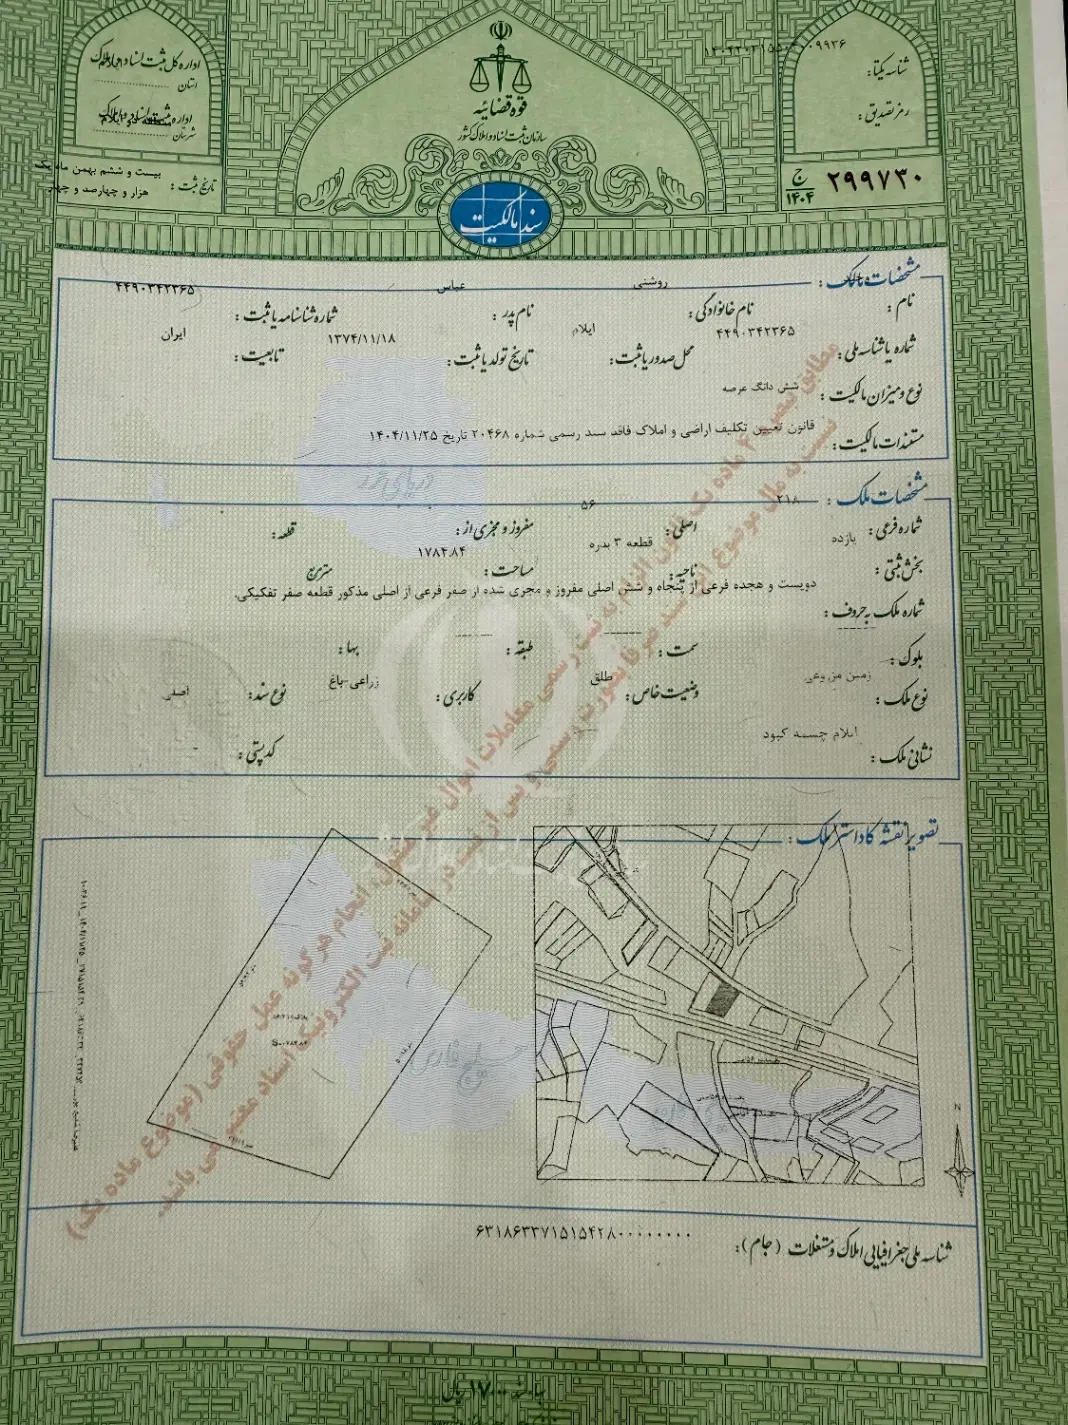 قوه قضائیه
سازمان ثبت اسناد و املاک کشور
شناسه یکتا:
رمز تصدیق:
ج
۱۴۰۴
۲۹۹۷۳۰
اداره کل ثبت اسناد و املاک
استان
شهرستان
تاریخ ثبت: بیست و ششم بهمن ماه یک
هزار و چهارصد و چهار
سند مالکیت
مشخصات مالک:
نام:
نام خانوادگی: روشنی
نام پدر: عباس
شماره شناسنامه یا ثبت: ۴۴۹۰۳۴۲۳۶۵
شماره یا شناسه ملی: ۴۴۹۰۳۴۲۳۶۵
محل صدور یا ثبت: ایلام
تاریخ تولد یا ثبت: ۱۳۷۴/۱۱/۱۸
تابعیت: ایران
نوع و میزان مالکیت: شش دانگ عرصه
مستندات مالکیت: قانون تعیین تکلیف اراضی و املاک فاقد سند رسمی شماره ۲۰۴۶۸ تاریخ ۱۴۰۴/۱۱/۲۵
مشخصات ملک:
شماره فرعی: ۲۱۸
اصلی: ۵۶
مفروز و مجزی از:
قطعه:
بخش ثبتی: یازده
ناحیه: قطعه ۳ بدره
مساحت: ۱۷۸۴.۸۴
متر مربع
شماره ملک به حروف: دویست و هجده فرعی از پنجاه و شش اصلی مفروز و مجزی شده از صفر فرعی از اصلی مذکور قطعه صفر تفکیکی.
بلوک: -------
سمت: -------
طبقه: -------
بها:
نوع ملک: زمین مزروعی
وضعیت خاص: طلق
کاربری: زراعی-باغ
نوع سند: اصلی
نشانی ملک: ایلام چشمه کبود
کد پستی: -
تصویر نقشه کاداستر ملک:
دریای خزر
خلیج فارس
N
مطابق تبصره ۴ ماده یک قانون الزام به ثبت رسمی معاملات اموال غیر منقول، انجام هرگونه عمل حقوقی (موضوع ماده یک)
نسبت به مال موضوع این سند صرفا بصورت رسمی و پس از ثبت در سامانه ثبت الکترونیک اسناد معتبر می باشد.
شناسه ملی جغرافیایی املاک و مستغلات (جام): ۶۳۱۸۶۳۳۷۱۵۱۵۴۲۸۰۰۰۰۰۰۰۰۰